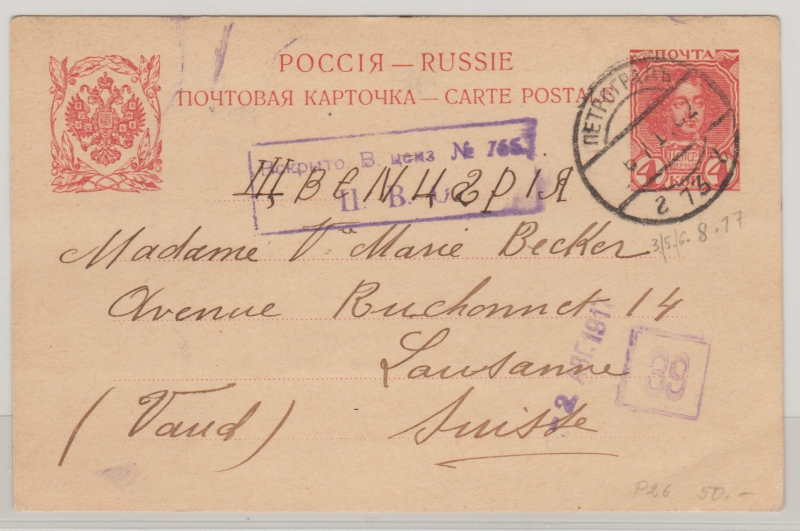 РОССІЯ — RUSSIE
ПОЧТОВАЯ КАРТОЧКА — CARTE POSTA
ПОЧТА
4
ПЕТРОГРАДЪ
Вскрыто. В. ценз № 765.
П. В.
Щвенцарія
Madame Vve Marie Becker
Avenue Ruchonnet 14
Lausanne
(Vaud) Suisse
3/5./6. 8. 17
2 АВГ. 191
39
P26 50.-